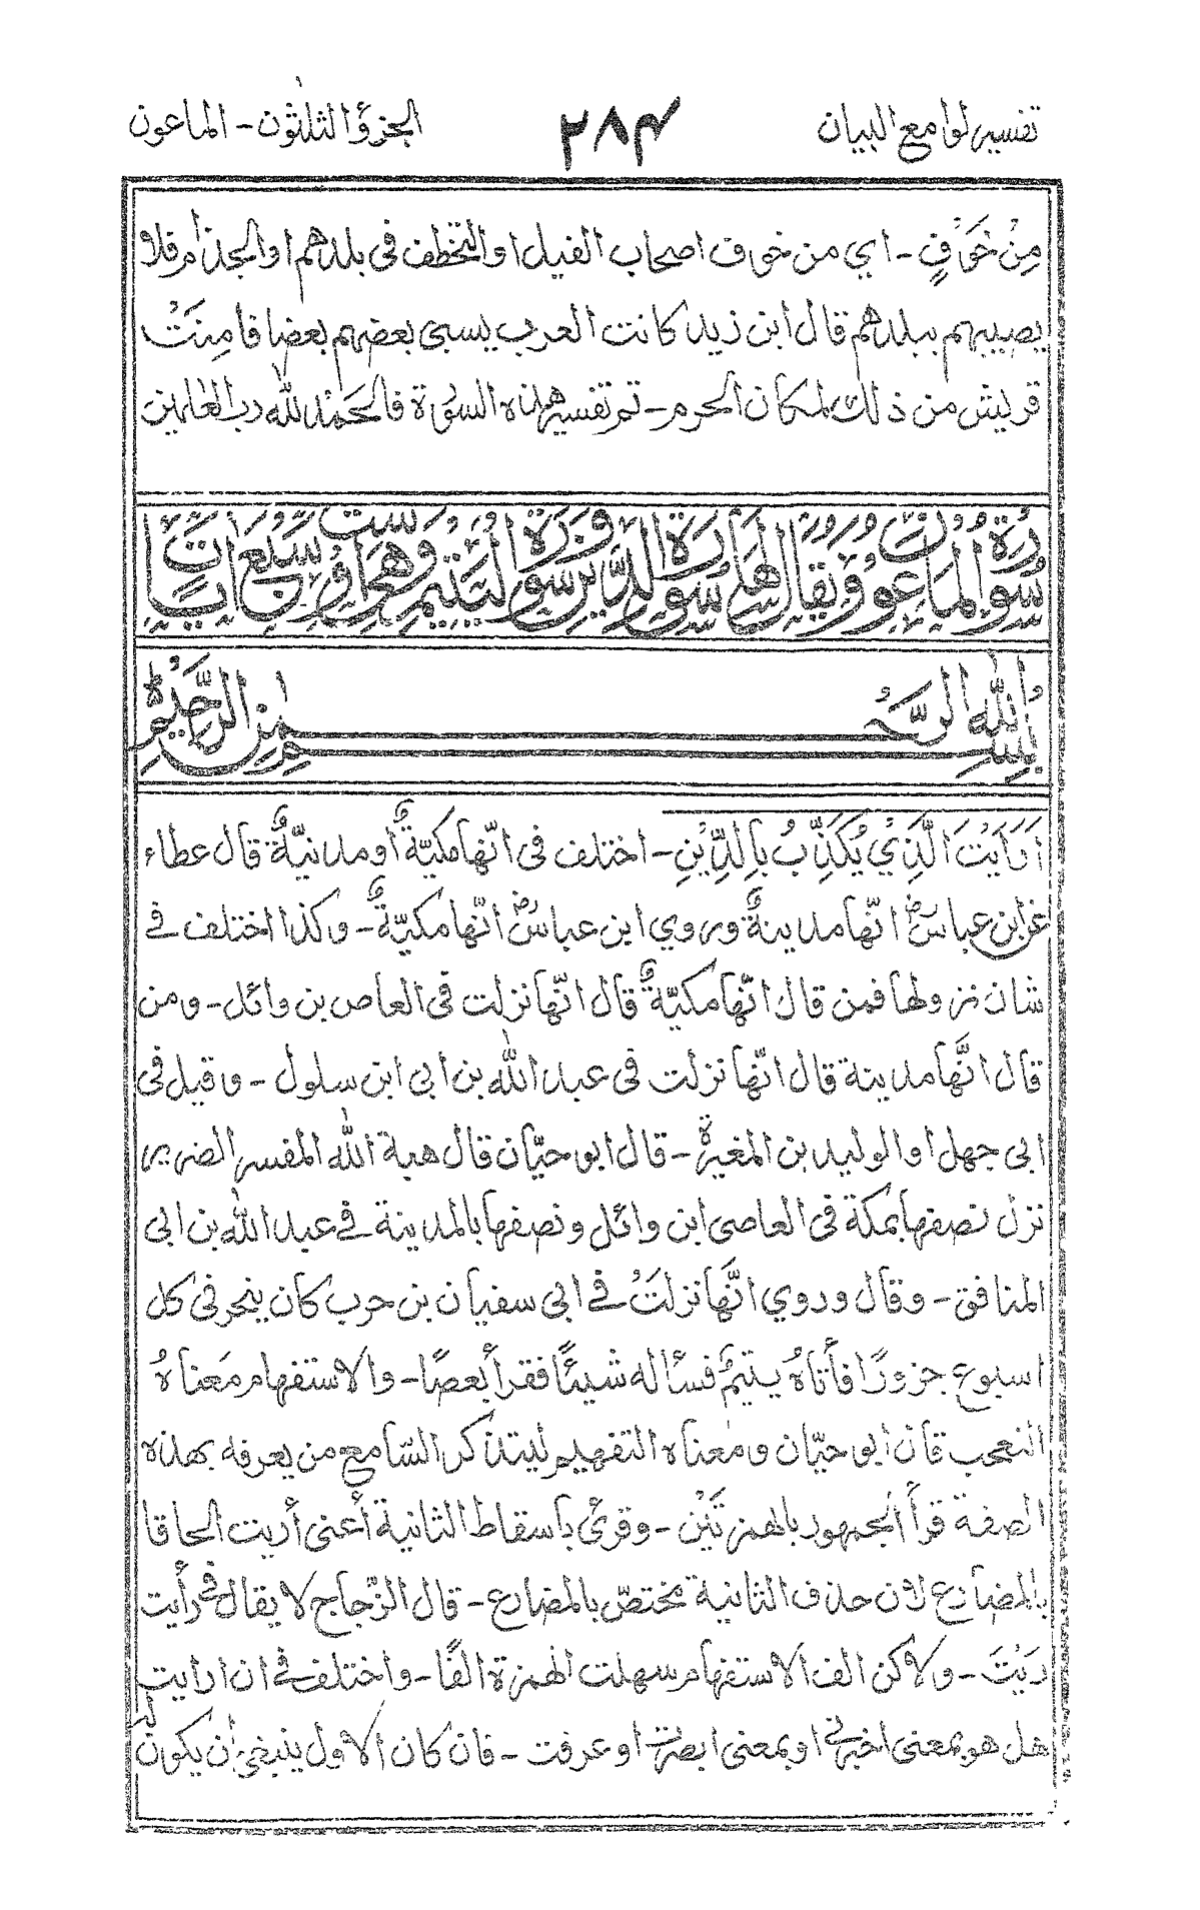 تفسير لوامع البيان ٢٨٤ الجزؤ الثلثون - الماعون
مِنْ خَوْفٍ - اي من خوف اصحاب الفيل او التخطف في بلدهم او الجذام فلا
يصيبهم ببلدهم قال ابن زيد كانت العرب يسبي بعضهم بعضا فأمِنَتْ
قريش من ذلك لمكان الحرم - تم تفسير هذه السورة فالحمد لله رب العلمين
سورة الماعون ويقال لها سورة الدين سورة اليتيم وهي ست او سبع ايات
بسم الله الرحمن الرحيم
اَرَاَيْتَ الَّذِيْ يُكَذِّبُ بِالدِّيْنِ - اختلف في انّها مكيّةٌ او مدنيّةٌ قال عطاء
عن ابن عباسؓ انّها مدينةٌ وروي ابن عباسؓ انّها مكيّةٌ - وكذا اختلف في
شان نزولها فمن قال انّها مكيّةٌ قال انّها نزلت في العاص بن وائل - ومن
قال انَّها مدينة قال انّها نزلت في عبد الله بن ابي ابن سلول - وقيل في
ابي جهل او الوليد بن المغيرة - قال ابو حيّان قال هبة الله المفسر الضرير
نزل نصفها بمكة في العاصي ابن وائل ونصفها بالمدينة في عبد الله بن ابي
المنافق - وقال وروي انَّها نزلتْ في ابي سفيان بن حرب كان ينحر في كل
اسبوع جزورًا فأتاهُ يتيمٌ فسأله شيئًا فقرأ بعصًا - والاستفهام معناهُ
التعجب قال ابو حيّان ومعناه التفهيم ليتذكر السّامع من يعرفه بهذه
الصفة قرأ الجمهور بالهمزتَيْن - وقرئ باسقاط الثانية أعني أريت الحاقا
بالمضارع لان حذف الثانية مختصّ بالمضارع - قال الزّجاج لا يقال في رأيت
رَيْتَ - ولاكن الف الاستفهام سهلت الهمزة الفًا - واختلف في ان ارايت
هل هو بمعنى اخبرني او بمعنى ابصرت او عرفت - فان كان الاول ينبغي ان يكون له